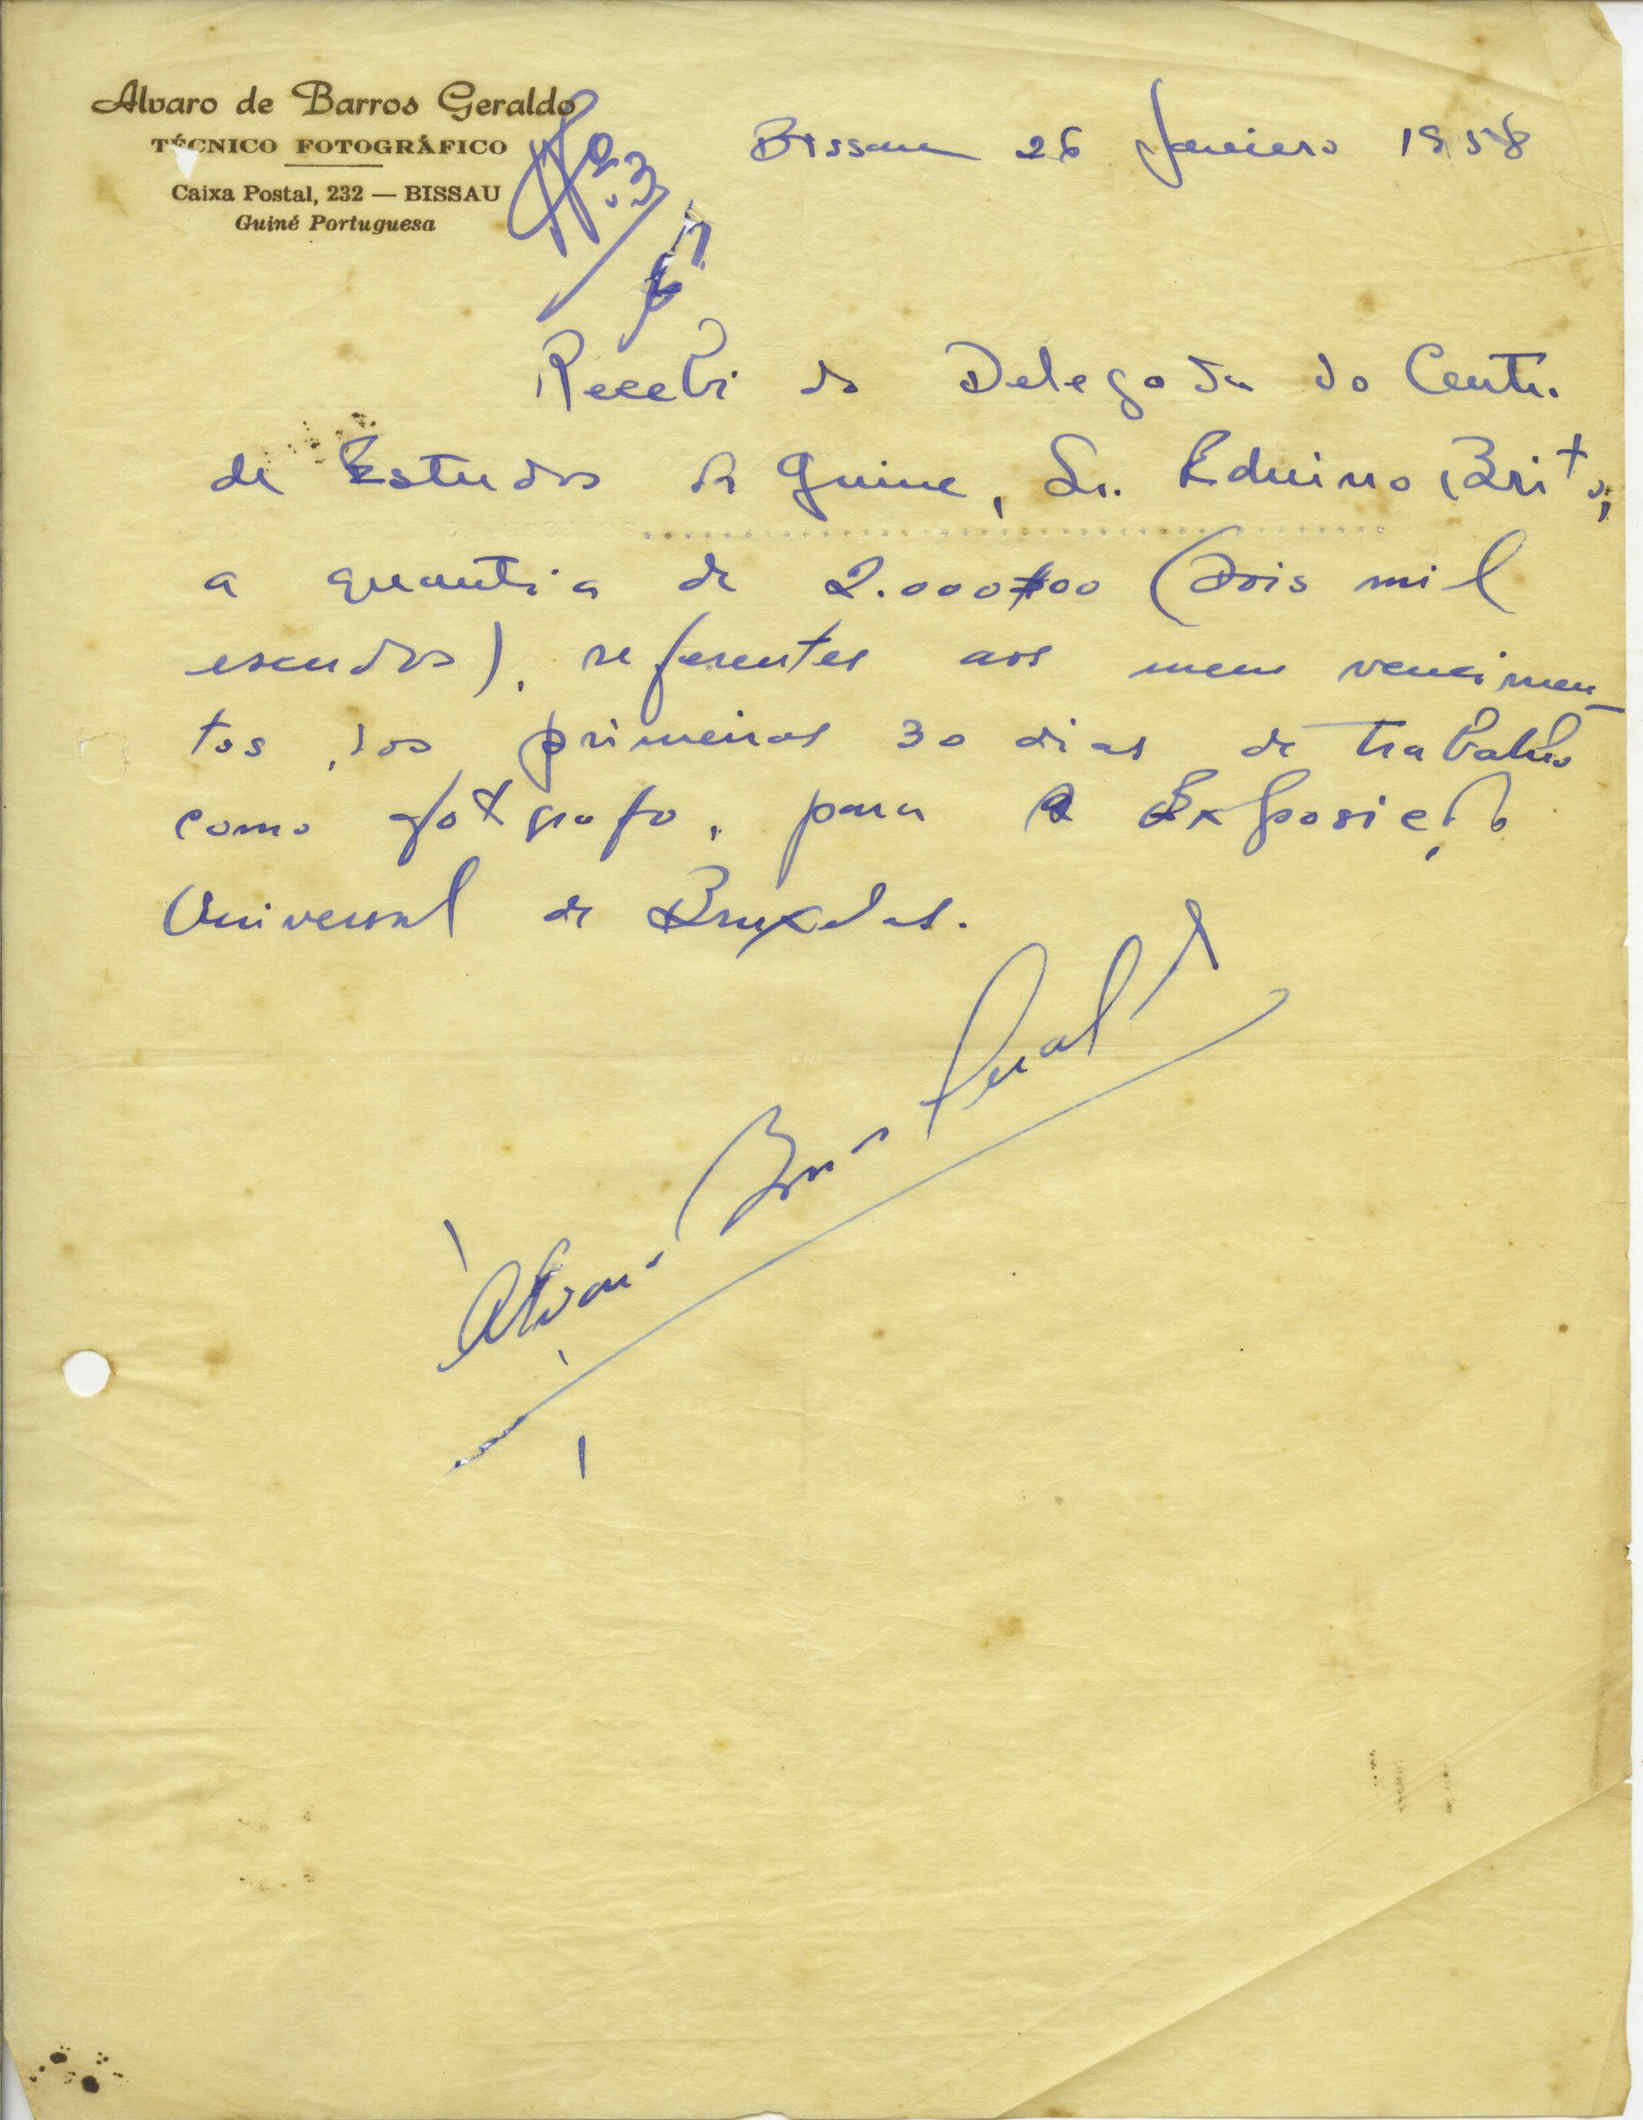 Alvaro de Barros Geraldo
TÉCNICO FOTOGRÁFICO
Caixa Postal, 232 — BISSAU
Guiné Portuguesa
Bissau 26 Janeiro 1958
Recebi do Delegado do Centro
de Estudos da Guine, Sr. Eduino Brito,
a quantia de 2.000$00 (Dois mil
escudos), referentes aos meus vencimen-
tos, dos primeiros 30 dias de trabalho
como fotografo, para a Exposição
Universal de Bruxelas.
Alvaro Barros Geraldo